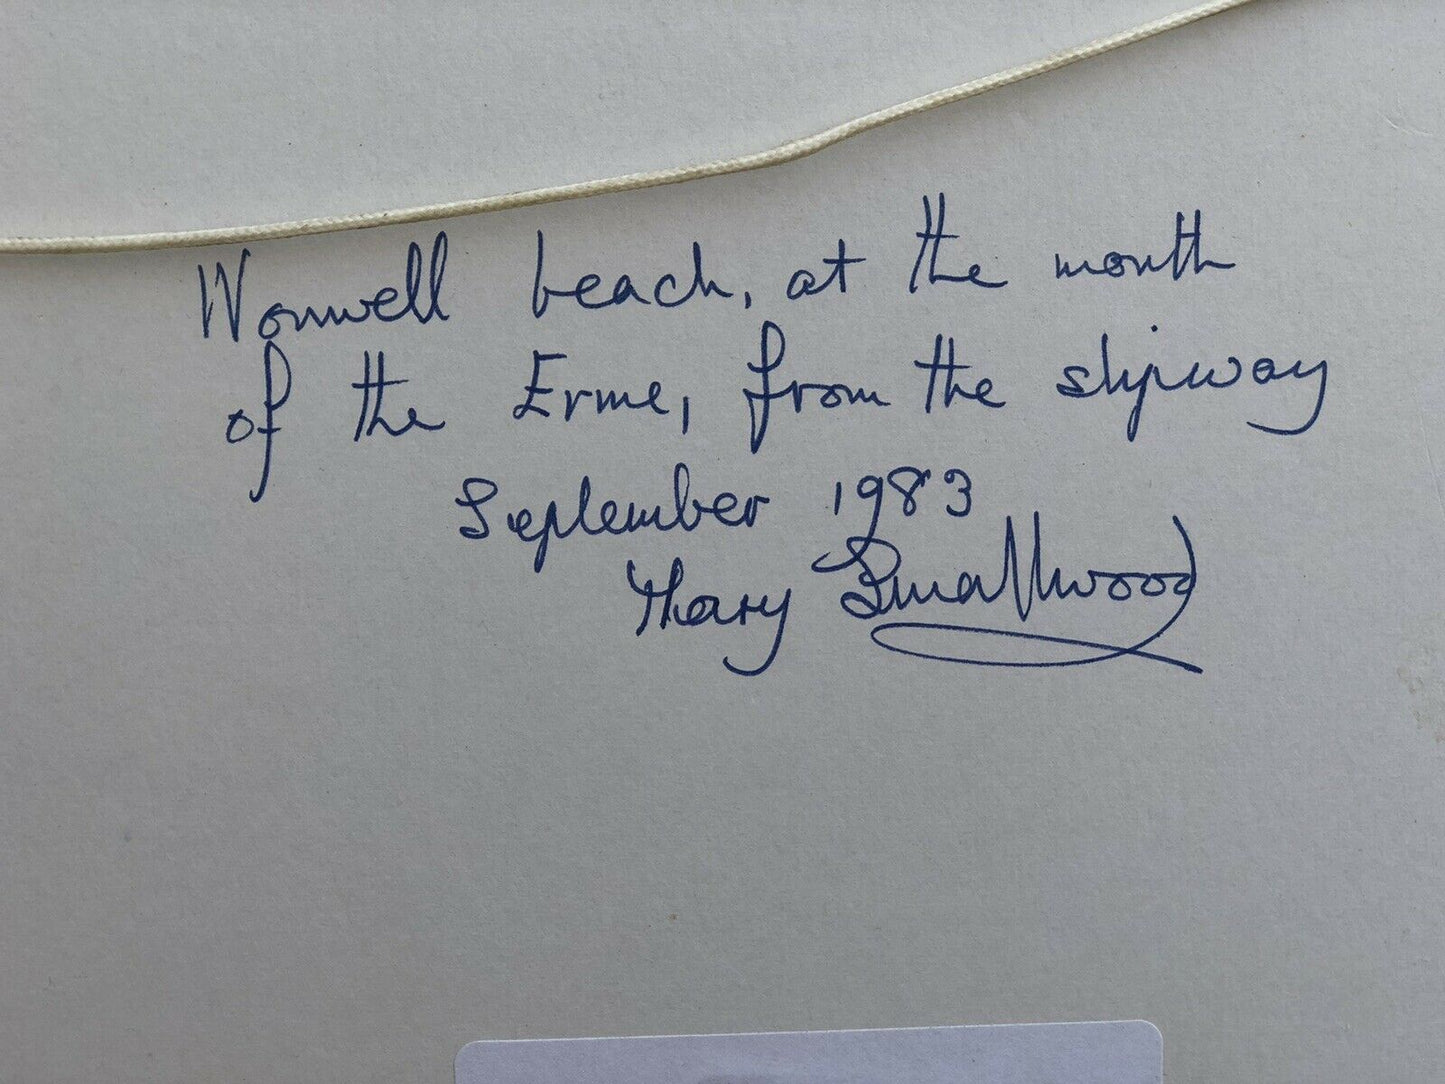 Wonwell beach, at the mouth
of the Erme, from the slipway
September 1983
Mary Smallwood